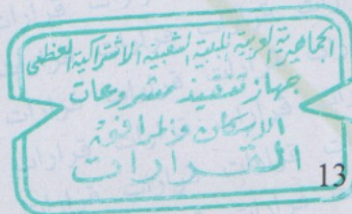 الجماهيرية العربية الليبية الشعبية الاشتراكية العظمى
جهاز تنفيذ مشروعات
الاسكان والمرافق
القرارات
13